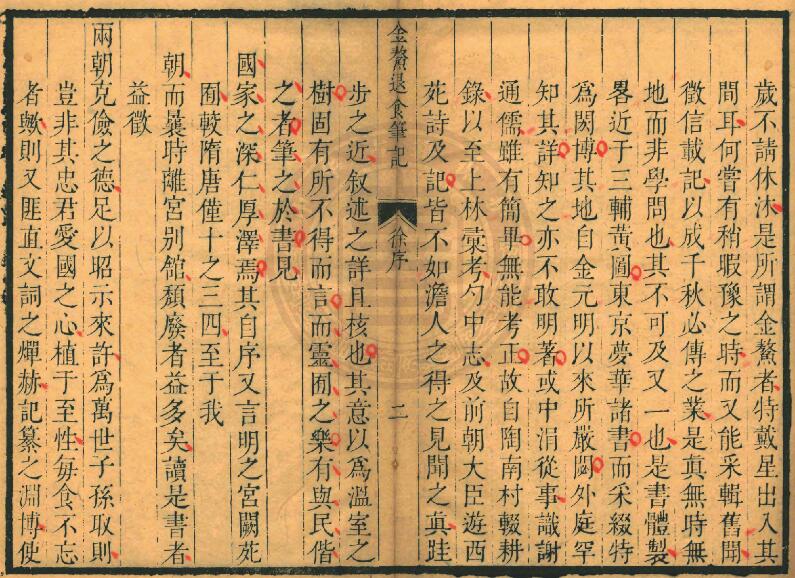 歲不請休沐是所謂金鰲者特戴星出入其
間耳何嘗有稍暇豫之時而又能采輯舊聞
徵信載記以成千秋必傳之業是眞無時無
地而非學問也其不可及又一也是書體製
畧近于三輔黃圖東京夢華諸書而采綴特
爲闕博其地自金元明以來所嚴闕外庭罕
知其詳知之亦不敢明著或中涓從事識謝
通儒雖有簡畢無能考正故自陶南村輟耕
錄以至上林彙考勺中志及前朝大臣遊西
苑詩及記皆不如澹人之得之見聞之眞跬
金鰲退食筆記
徐序
二
步之近叙述之詳且核也其意以爲溫室之
樹固有所不得而言而靈囿之樂有與民偕
之者筆之於書見
國家之深仁厚澤焉其自序又言明之宮闕苑
囿較隋唐僅十之三四至于我
朝而曩時離宮别館頹廢者益多矣讀是書者
益徵
兩朝克儉之德足以昭示來許爲萬世子孫取則
豈非其忠君愛國之心植于至性毎食不忘
者歟則又匪直文詞之燀赫記纂之淵博使